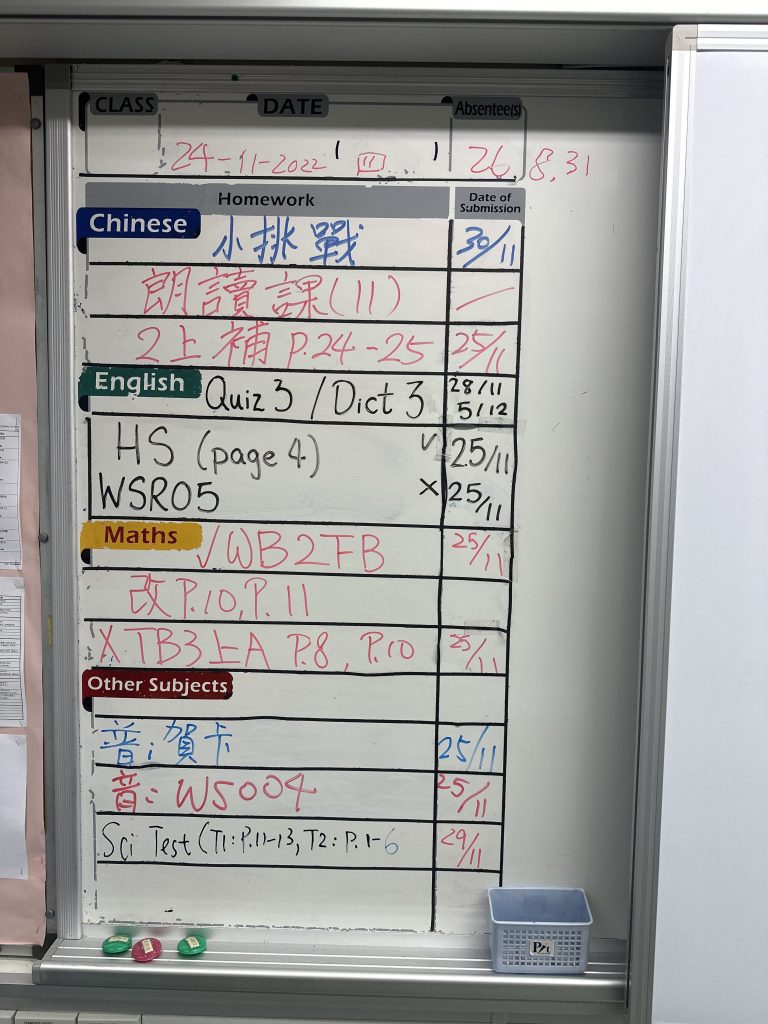 CLASS DATE Absentee(s)
24-11-2022 (四) 26, 8, 31
Homework Date of Submission
Chinese 小挑戰 30/11
朗讀課(11) —
2上補 P.24-25 25/11
English Quiz 3 / Dict 3 28/11 5/12
HS (page 4) ✓ 25/11
WSR05 × 25/11
Maths ✓WB2TB 25/11
改 P.10, P.11
X TB3上A P.8, P.10 25/11
Other Subjects
普: 賀卡 25/11
音: WS004 25/11
Sci Test (T1: P.11-13, T2: P.1-6 29/11